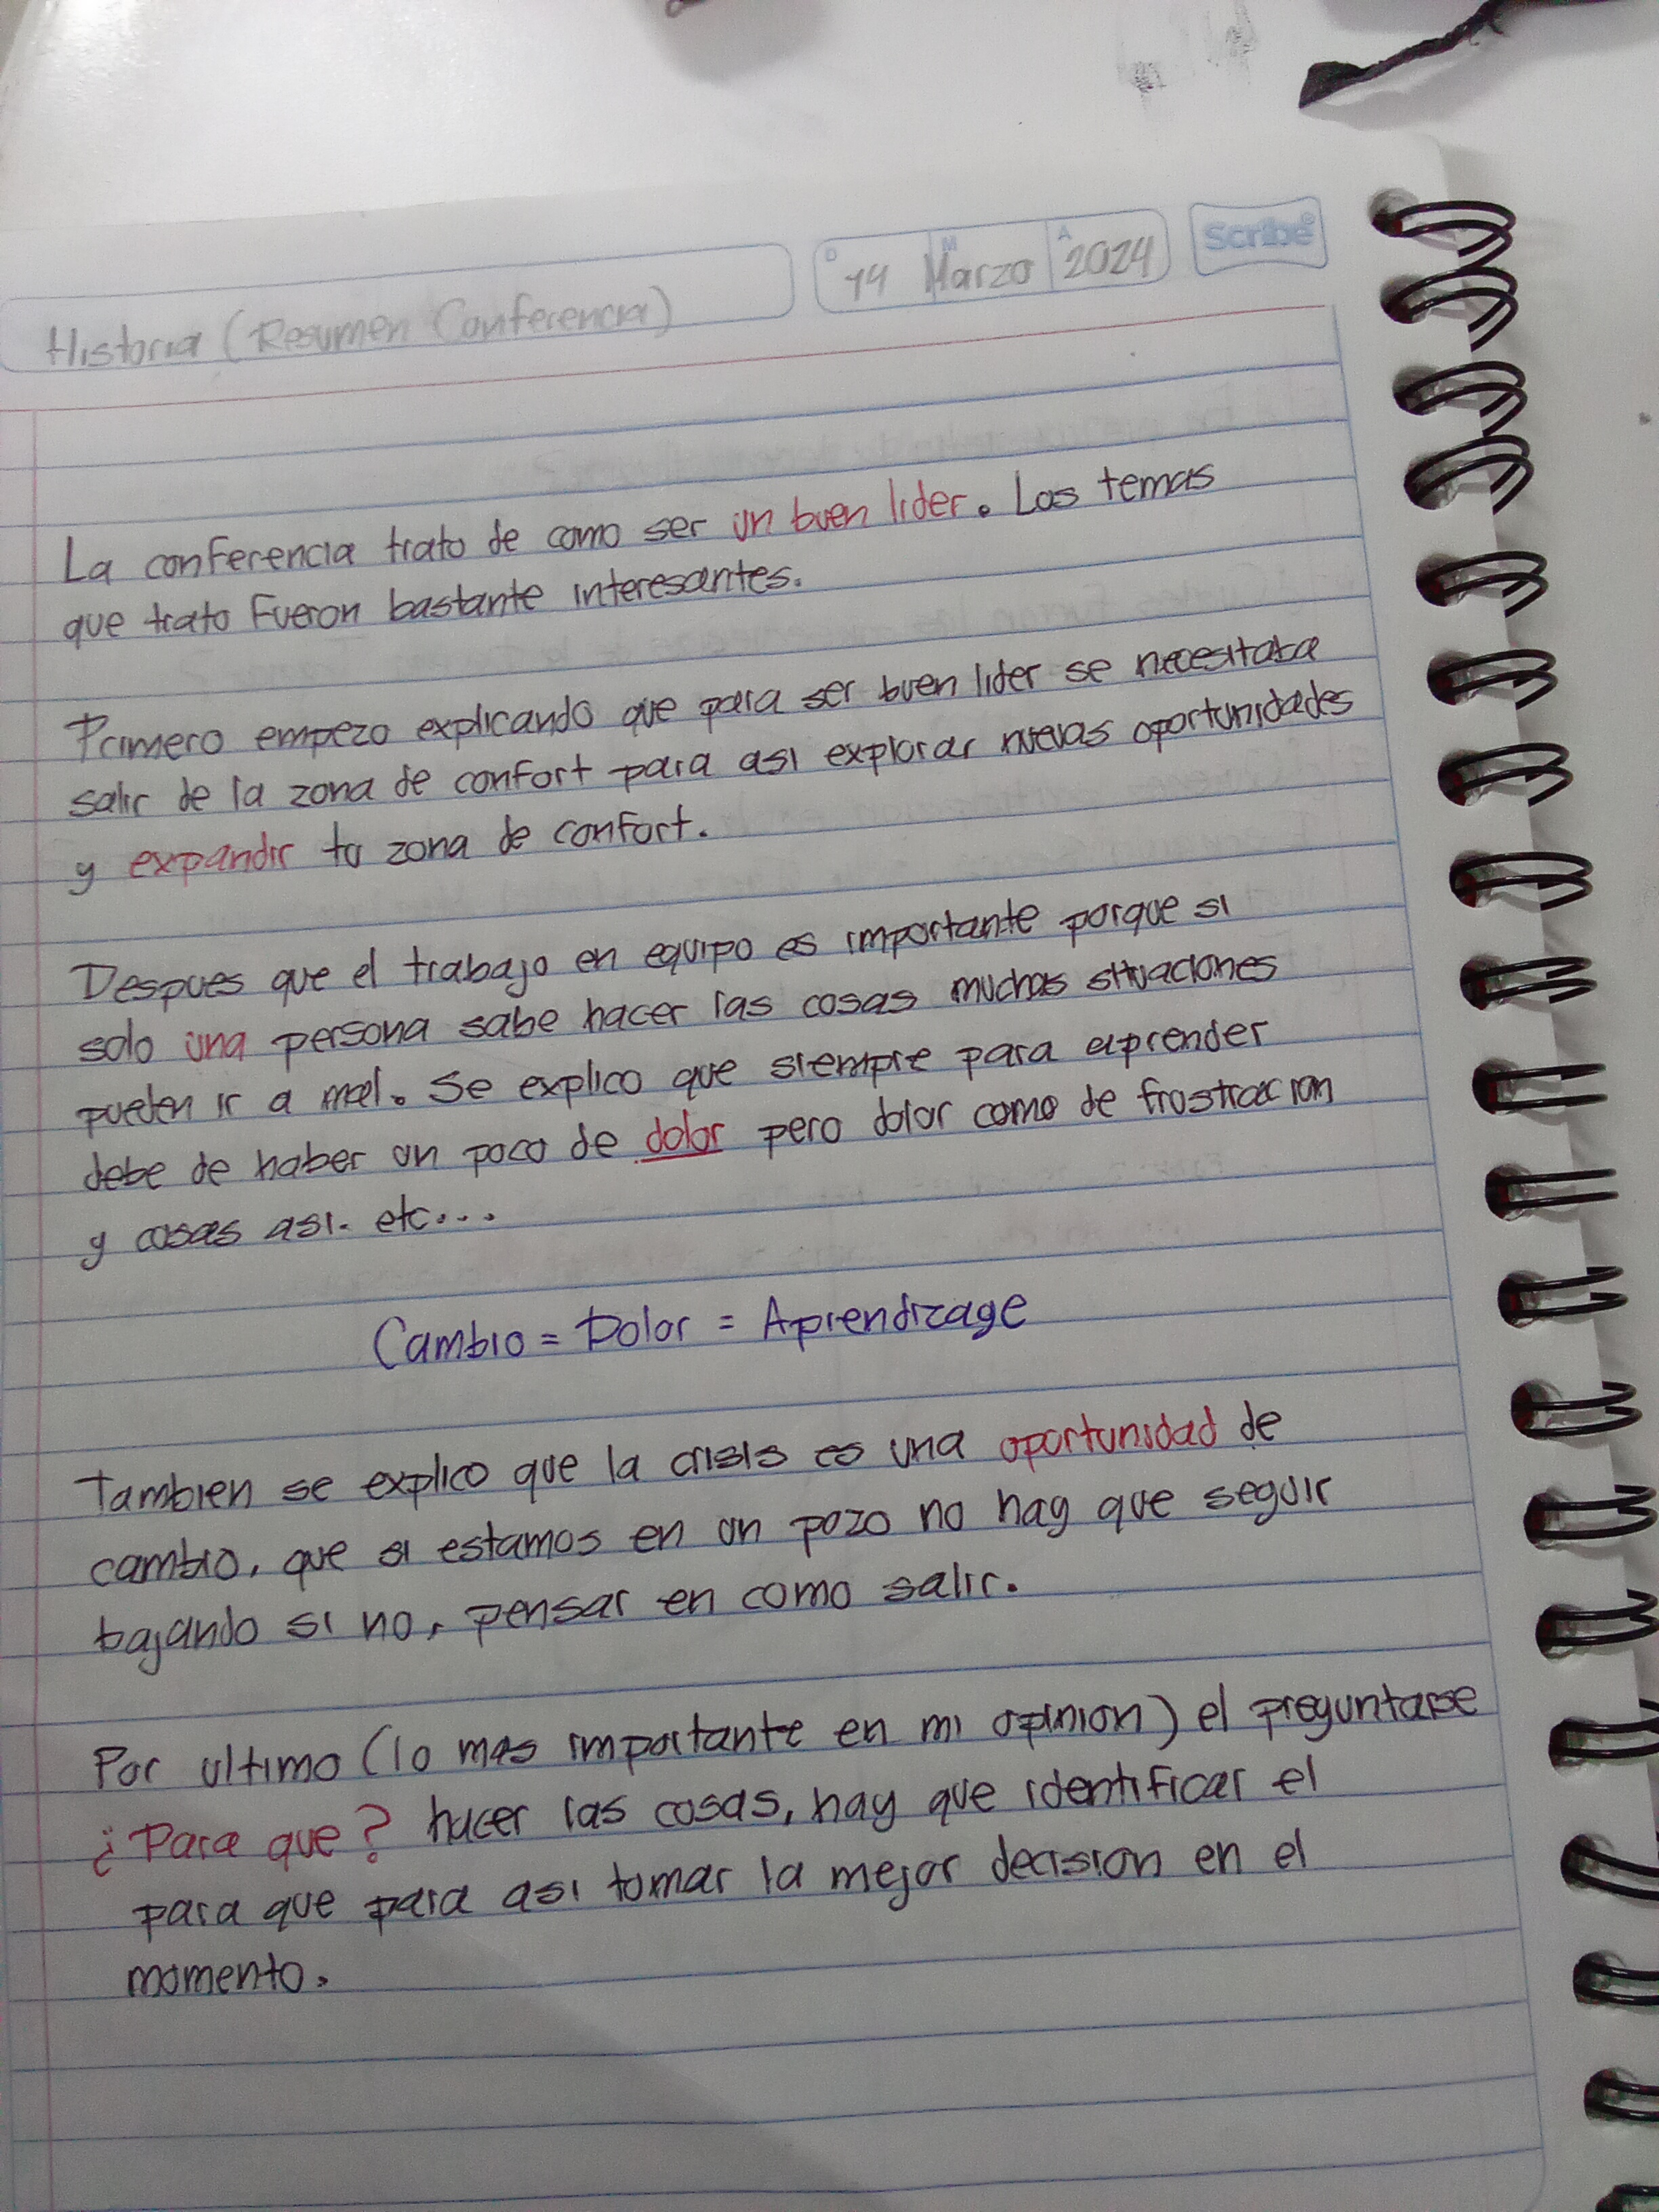 Historia (Resumen Conferencia)
D 14 M Marzo A 2024 Scribe®
La conferencia trato de como ser un buen lider. Los temas
que trato Fueron bastante interesantes.
Primero empezo explicando que para ser buen lider se necesitaba
salir de la zona de confort para asi explorar nuevas oportunidades
y expandir tu zona de confort.
Despues que el trabajo en equipo es importante porque si
solo una persona sabe hacer las cosas muchas situaciones
pueden ir a mal. Se explico que siempre para aprender
debe de haber un poco de dolor pero dolor como de frustracion
y cosas asi. etc...
Cambio = Dolor = Aprendizage
Tambien se explico que la crisis es una oportunidad de
cambio, que si estamos en un pozo no hay que seguir
bajando si no, pensar en como salir.
Por ultimo (lo mas importante en mi opinion) el preguntarse
¿Para que? hacer las cosas, hay que identificar el
para que para asi tomar la mejor decision en el
momento.